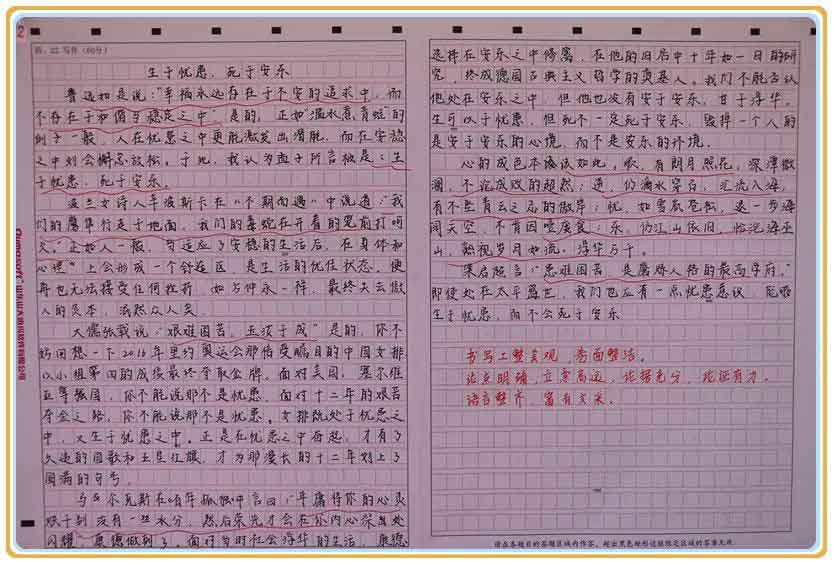 四、22.写作(60分)
生于忧患，死于安乐
鲁迅如是说：“幸福永远存在于不安的追求中，而
不存在于和谐与稳定之中”是的，正如“温水煮青蛙”的
例子一般，人在忧患之中更能激发出潜能，而在安稳
之中则会懈怠放松。于此，我认为孟子所言极是：生
于忧患，死于安乐。
波兰女诗人辛波斯卡在《不期而遇》中说道：“我
们的鹰隼行走于地面，我们的毒蛇在开着的笼前打呵
欠。”正如人一般，当适应了安稳的生活后，在身体和
心理上会形成一个舒适区，是生活的优佳状态，使
再也无法接受任何挫折，如与仲永一样，最终失去做
人的资本，泯然众人矣。
大儒张载说“艰难困苦，玉汝于成”是的，你不
妨回想一下2016年里约奥运会那倍受瞩目的中国女排
以小组第四的成绩最终夺取金牌。面对美国，塞尔维
亚等强国，你不能说那不是忧患，面对十二年的艰苦
夺金之路，你不能说那不是忧患。女排既处于忧患之
中，又生于忧患之中。正是在忧患之中奋起，才有了
久违的国歌和五星红旗，才为那漫长的十二年划上了
圆满的句号。
马尔克斯在《百年孤独》中言曰：
闪耀”康德做到了，面对当时社会浮华的生活，康德
选择在安乐之中修寓，在他的日后中十年如一日的研
究，终成德国古典主义哲学的奠基人。我们不能否认
他处在安乐之中，但他也没有安于安乐，甘于浮华。
生可以于忧患，但死不一定死于安乐，毁掉一个人的
是安于安乐的心境，而不是安乐的环境。
心的成色本该该如此，顺，有朗月照花，深潭微
澜，不论成败的超然；逆，仍滴水穿石，汇流入海，
有不坠青云之志的傲岸；忧，如雪底苍松，退一步海
阔天空，不有因噎废食；乐，仍江山依旧，临沧海巫
山，熟视岁月如流，浮华万千。
梁启超言：“患难困苦，是磨炼人格的最高学府。”
即使处在太平盛世，我们也应有一点忧患意识，能够
生于忧患，而不会死于安乐
书写工整美观，卷面整洁。
论点明确，立意高远，论据充分，论证有力。
语言整齐，富有文采。
请在各题目的答题区域内作答，超出黑色矩形边框限定区域的答案无效